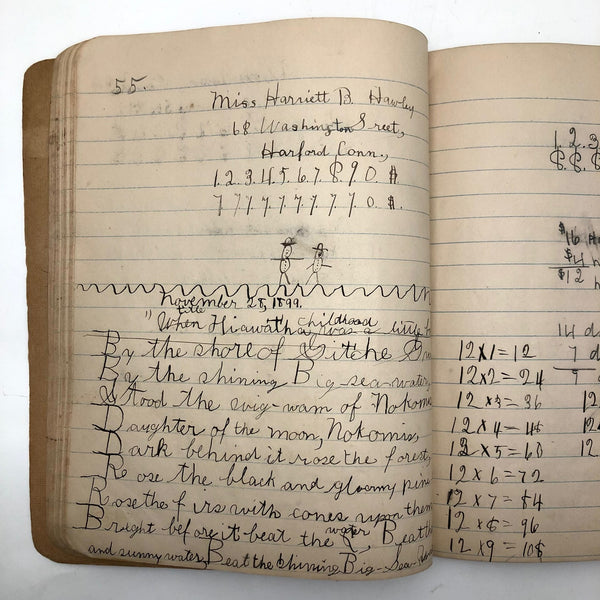 55.
Miss Harriett B. Hawley
68 Washington Sreet,
Harford Conn.,
1. 2. 3. 4. 5. 6. 7. 8. 9 0. #
7 7 7 7 7 7 7 7 7 0. $.
November 28, 1899.
title
childhood
"When Hiawatha was a little
By the shore of Gitche
By the shining Big-sea-water,
Stood the wig-wam of Nokomis
Daughter of the moon, Nokomis,
Dark behind it rose the forest,
Rose the black and gloomy pine
Rose the firs with cones upon them
water,
Bright before it beat the Beat the
and sunny water, Beat the shining Big-Sea-
1. 2. 3
8. 8. 8
$16
$4
$12 h
14 d
7 d
9
12×1=12
12×2=24
12×3=36
12×4=48
12×5=60
12×6=72
12×7=84
12×8=96
12×9=108
12
12
12.